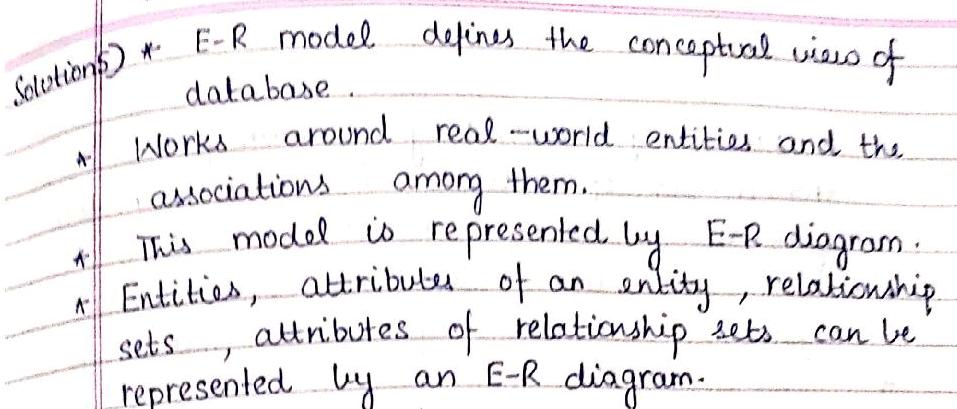 Solution5) * E-R model defines the conceptual view of
database.
* Works around real-world entities and the
associations among them.
* This model is represented by E-R diagram.
* Entities, attributes of an entity, relationship
sets, attributes of relationship sets can be
represented by an E-R diagram.